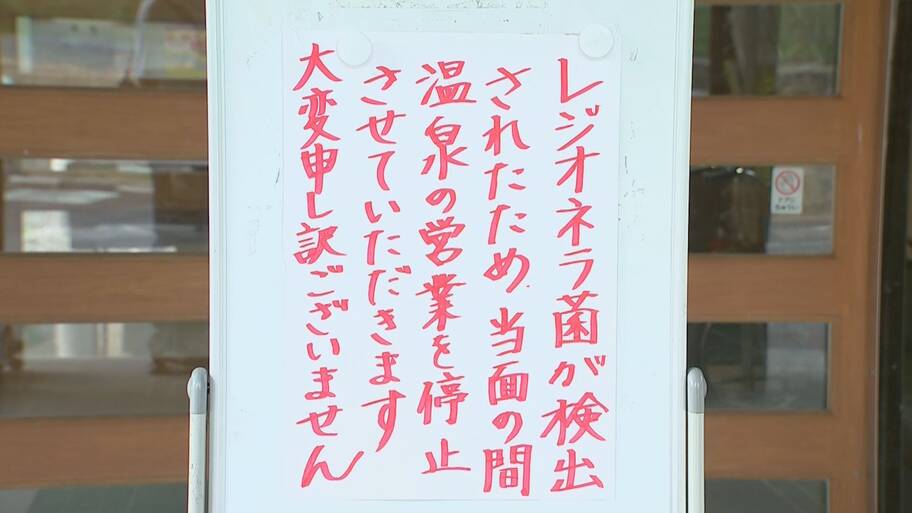 レジオネラ菌が検出
されたため.当面の間
温泉の営業を停止
させていただきます
大変申し訳ございません